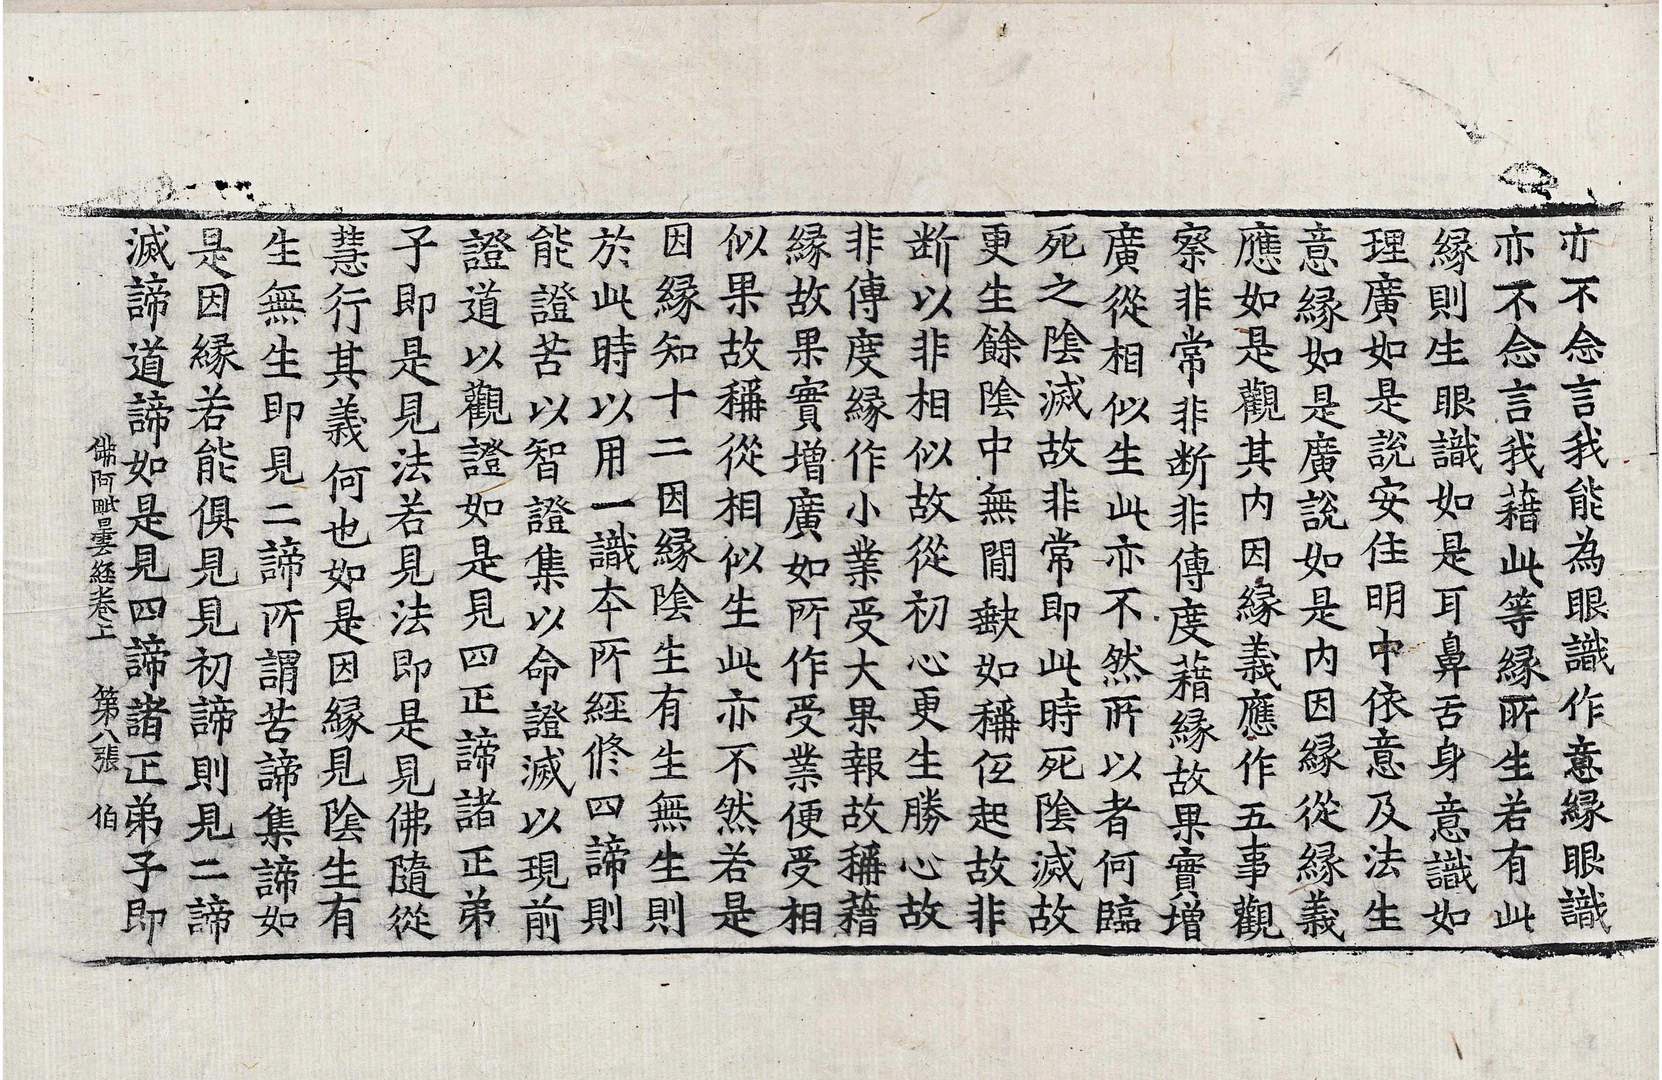 亦不念言我能為眼識作意縁眼識
亦不念言我藉此等縁所生若有此
縁則生眼識如是耳鼻舌身意識如
理廣如是說安住明中依意及法生
意縁如是廣說如是内因縁從縁義
應如是觀其内因縁義應作五事觀
察非常非断非傳度藉縁故果實增
廣從相似生此亦不然所以者何臨
死之陰滅故非常即此時死陰滅故
更生餘陰中無間𡙇如稱伍起故非
断以非相似故從初心更生勝心故
非傳度縁作小業受大果報故稱藉
縁故果實增廣如所作受業便受相
似果故稱從相似生此亦不然若是
因縁知十二因縁陰生有生無生則
於此時以用一識本所經修四諦則
能證苦以智證集以命證滅以現前
證道以觀證如是見四正諦諸正弟
子即是見法若見法即是見佛隨從
慧行其義何也如是因縁見陰生有
生無生即見二諦所謂苦諦集諦如
是因縁若能俱見見初諦則見二諦
滅諦道諦如是見四諦諸正弟子即
佛阿毗曇經卷上　第八張　伯